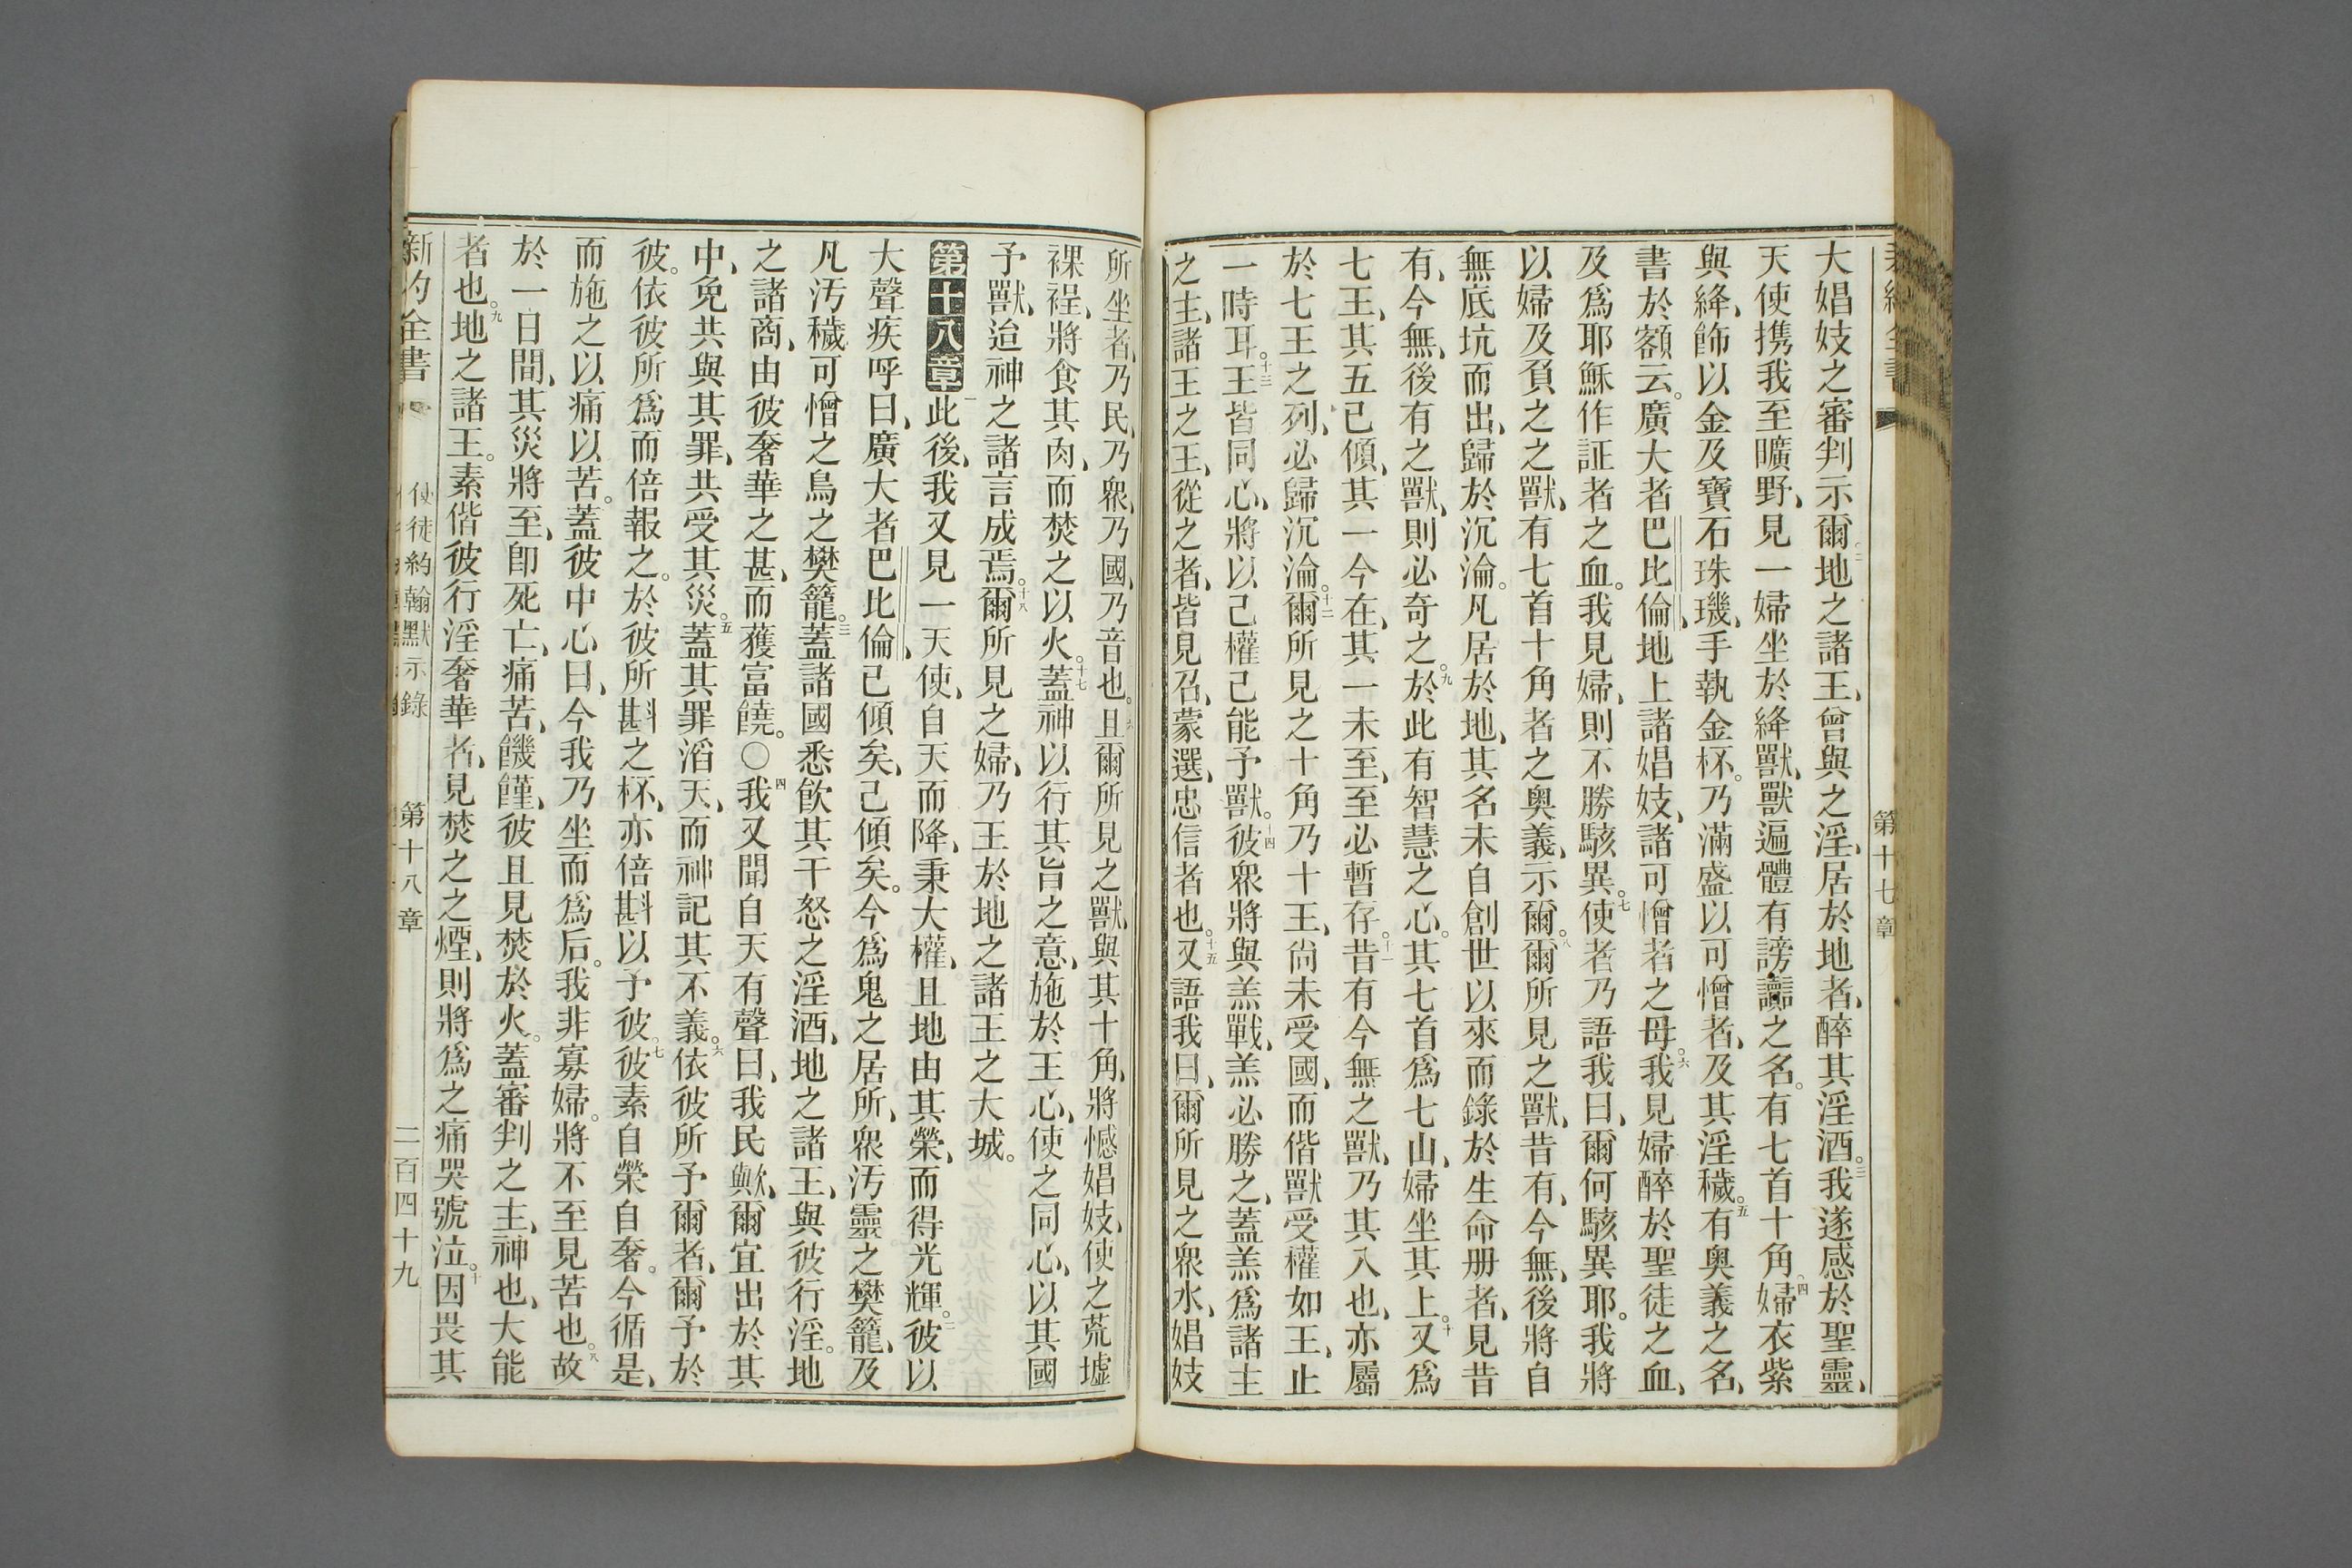 第十七章
大娼妓之審判示爾。二地之諸王、曾與之淫、居於地者、醉其淫酒。三我遂感於聖靈、
天使携我至曠野、見一婦坐於絳獸、獸遍體有謗讟之名。有七首十角。四婦衣紫
與絳、飾以金及寶石珠璣、手執金杯。乃滿盛以可憎者、及其淫穢。五有奧義之名、
書於額云。廣大者巴比倫、地上諸娼妓、諸可憎者之母。六我見婦醉於聖徒之血、
及爲耶穌作証者之血。我見婦、則不勝駭異。七使者乃語我曰、爾何駭異耶。我將
以婦及負之之獸、有七首十角者之奧義、示爾。八爾所見之獸、昔有、今無、後將自
無底坑而出、歸於沉淪。凡居於地、其名未自創世以來而錄於生命册者、見昔
有、今無、後有之獸、則必奇之。九於此有智慧之心。其七首爲七山、婦坐其上。十又爲
七王、其五已傾、其一今在、其一未至、至必暫存。十一昔有今無之獸、乃其八也、亦屬
於七王之列、必歸沉淪。十二爾所見之十角乃十王、尙未受國、而偕獸受權如王、止
一時耳。十三王皆同心、將以己權己能予獸。十四彼衆將與羔戰、羔必勝之、蓋羔爲諸主
之主、諸王之王、從之者、皆見召、蒙選、忠信者也。十五又語我曰、爾所見之衆水、娼妓
所坐者、乃民、乃衆、乃國、乃音也。十六且爾所見之獸與其十角、將憾娼妓、使之荒墟
裸裎、將食其肉、而焚之以火。十七蓋神以行其旨之意、施於王心、使之同心、以其國
予獸、迨神之諸言成焉。十八爾所見之婦、乃王於地之諸王之大城。
第十八章 一此後、我又見一天使、自天而降、秉大權、且地由其榮、而得光輝。二彼以
大聲疾呼曰、廣大者巴比倫、已傾矣、已傾矣。今爲鬼之居所、衆汚靈之樊籠、及
凡汚穢可憎之鳥之樊籠。三蓋諸國悉飮其干怒之淫酒、地之諸王、與彼行淫。地
之諸商、由彼奢華之甚、而獲富饒。〇四我又聞自天有聲曰、我民歟、爾宜出於其
中、免共與其罪、共受其災。五蓋其罪滔天、而神記其不義。六依彼所予爾者、爾予於
彼。依彼所爲而倍報之。於彼所斟之杯、亦倍斟以予彼。七彼素自榮自奢。今循是、
而施之以痛以苦。蓋彼中心曰、今我乃坐而爲后。我非寡婦。將不至見苦也。八故
於一日間、其災將至、卽死亡、痛苦、饑饉、彼且見焚於火。蓋審判之主、神也、大能
者也。九地之諸王。素偕彼行淫奢華者、見焚之之煙、則將爲之痛哭號泣。十因畏其
新約全書 使徒約翰默示錄 第十八章 二百四十九